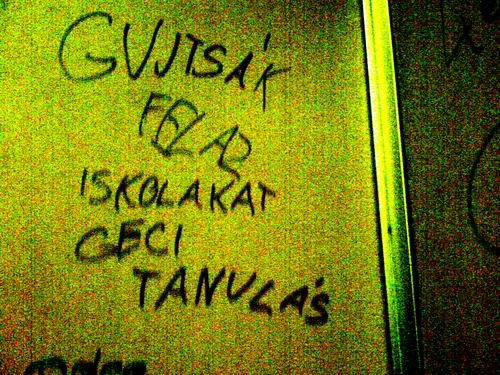 GUJTSÁK
FEL AZ
ISKOLAKAT
GECI
TANULÁS